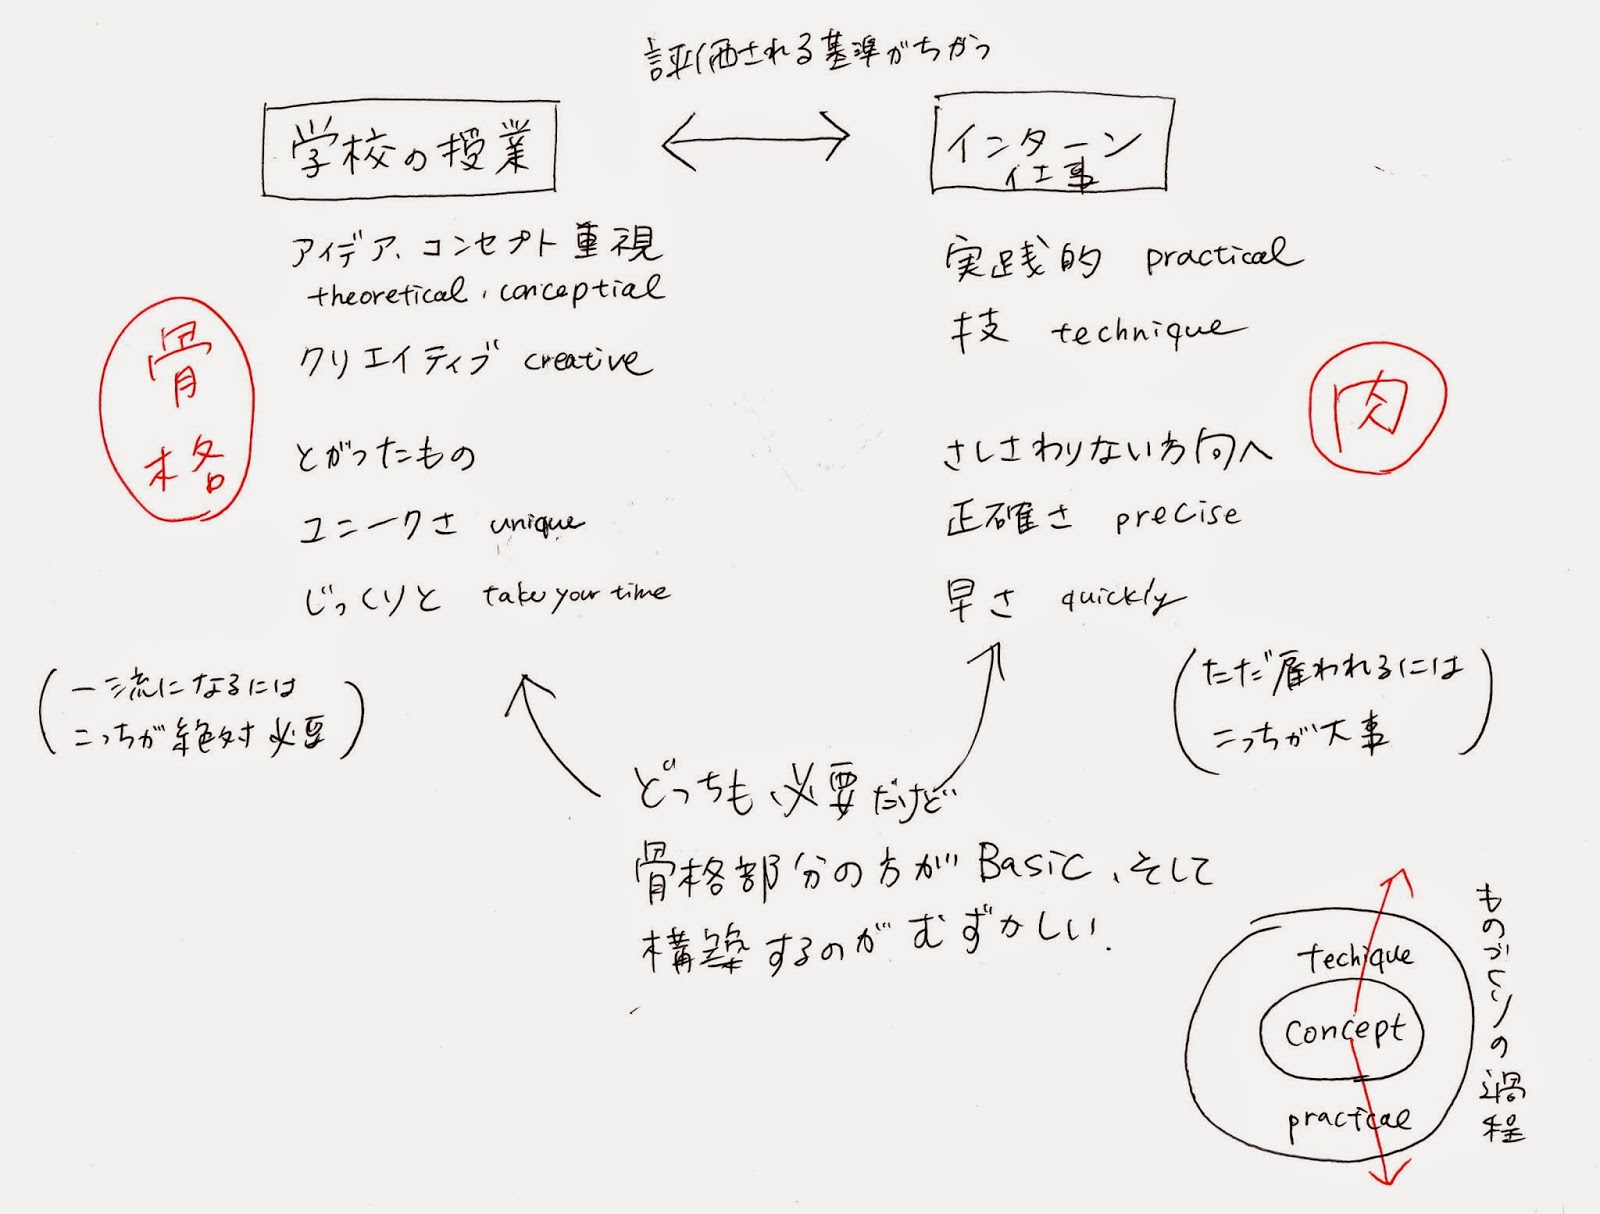 評価される基準がちがう
学校の授業
インターン
仕事
アイデア、コンセプト重視
theoretical, conceptial
クリエイティブ creative
骨格
とがったもの
ユニークさ unique
じっくりと take your time
(一流になるには
こっちが絶対必要)
実践的 practical
技 technique
肉
さしさわりない方向へ
正確さ precise
早さ quickly
(ただ雇われるには
こっちが大事)
どっちも必要だけど
骨格部分の方がBasic、そして
構築するのがむずかしい.
techique
concept
practical
ものづくりの過程